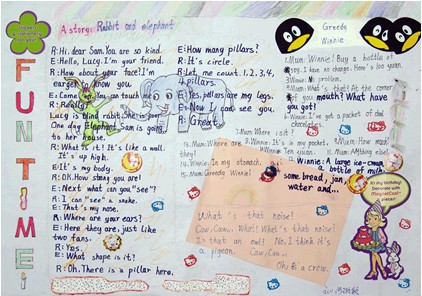 FUN TIME!
A story: Rabbit and elephant
R: Hi, dear Sam. You are so kind.
E: Hello, Lucy. I'm your friend.
R: How about your face? I'm
eager to know you
E: Come You can touch me
R: Really?
Lucy is blind rabbit. She is
One day Elephant Sam is going
to her house.
R: What's it? It's like a wall.
It's up high.
E: It's my body.
R: Oh. How strong you are!
E: Next what can you "see"?
R: I can "see" a snake.
E: That's my nose.
R: Where are your ears?
E: Here they are, just like
two fans.
R: Yes.
E: What shape is it?
R: Oh. There is a pillar here.
E: How many pillars?
R: It's circle.
R: Let me count. 1.2.3.4,
4 pillars.
E: Yes, pillars are my legs.
E: Now I can see you.
R: Great.
Greedy
Winnie
1. Mum: Winnie! Buy a bottle of
soy. I have no change. Here's 100 yuan.
2. Winnie: No problem.
3. Mum: What's that! At the corner
of your mouth? What have
you got!
Winnie: I've got a packet of
chocolates.
Mum: Where is it?
Winnie: It's in my pocket.
Mum: How much
Winnie: Ten yuan.
Mum: Anything else?
Winnie: A large ice-cream,
a bottle of milk,
some bread, jam
water and...
Mum: Where are they?
Winnie: In my stomach.
Mum: Greedy Winnie!
What's that noise?
Caw, Caw... What! What's that noise?
Is that an owl? No. I think it's
a pigeon.
Caw, Caw...
Oh, It's a crow.